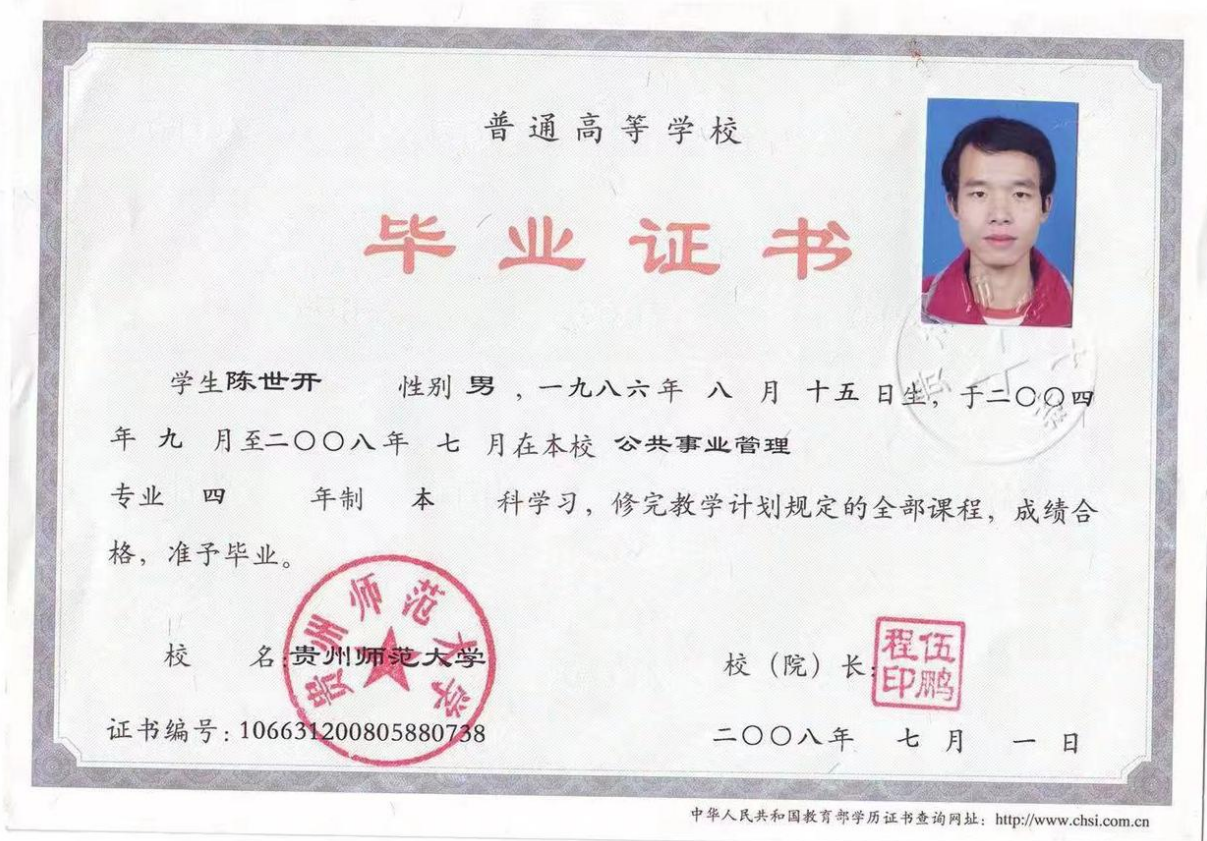 普通高等学校
毕业证书
学生陈世开 性别 男 ，一九八六年 八 月 十五 日生，于二〇〇四
年 九 月至二〇〇八年 七 月在本校 公共事业管理
专业 四 年制 本 科学习，修完教学计划规定的全部课程，成绩合
格，准予毕业。
贵州师范大学
校 名:贵州师范大学
校（院）长:
伍鹏程印
证书编号:106631200805880738
二〇〇八年 七 月 一 日
中华人民共和国教育部学历证书查询网址：http://www.chsi.com.cn